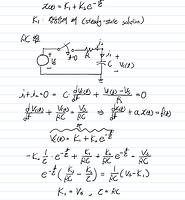 x(t) = K₁ + K₂e^(-t/τ)
K₁ : (steady-state solution)
DC
t=0
R
i₁
i₂
V₀
C
V_c(t)
i₁ + i₂ = 0 C dV_c(t)/dt + (V_c(t) - V₀)/R = 0
dV_c(t)/dt + V_c(t)/RC = V₀/RC dx(t)/dt + a x(t) = f(t)
V_c(t) = K₁ + K₂e^(-t/τ)
-K₂ 1/τ · e^(-t/τ) + K₁/RC + K₂/RC e^(-t/τ) = V₀/RC
e^(-t/τ) (K₂/RC - K₂/τ) = 1/RC (V₀ - K₁)
K₁ = V₀ , τ = RC